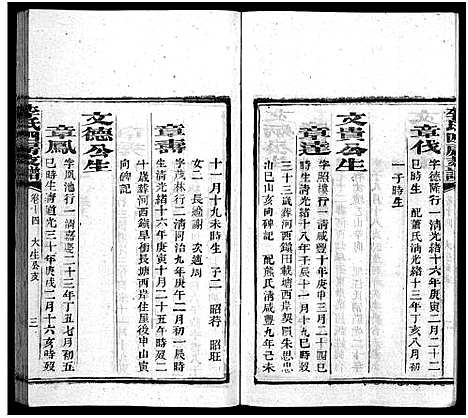 李氏四房支譜
章伐
字德隆行一清光緒十六年庚寅二月二十二
巳時生 配蕭氏清光緒十三年丁亥八月初
一子時生
文貴公生
章達
字照樓行一清咸豐十年庚申三月二十四巳
時生清光緒十八年壬辰十一月十九
三十三歲葬河西鎮田載塘西岸契園朱思忠
山巳山亥向碑記 配熊氏清咸豐九年己未
十一月十九未時生 子二 昭符 昭旺
女二 長適謝 次適周
章壽
字茂林行二清同治九年庚午二月初一辰時
生清光緒十年
十歲葬河西鎮旱衝長塘西岸住屋後申山寅
向碑記
文德公生
章鳳
字鳳池行一清嘉慶二十二年丁丑七月初五
巳時生清道光三十年庚戌二月十六亥時歿
李氏四房支譜
卷十四 大生公支
三